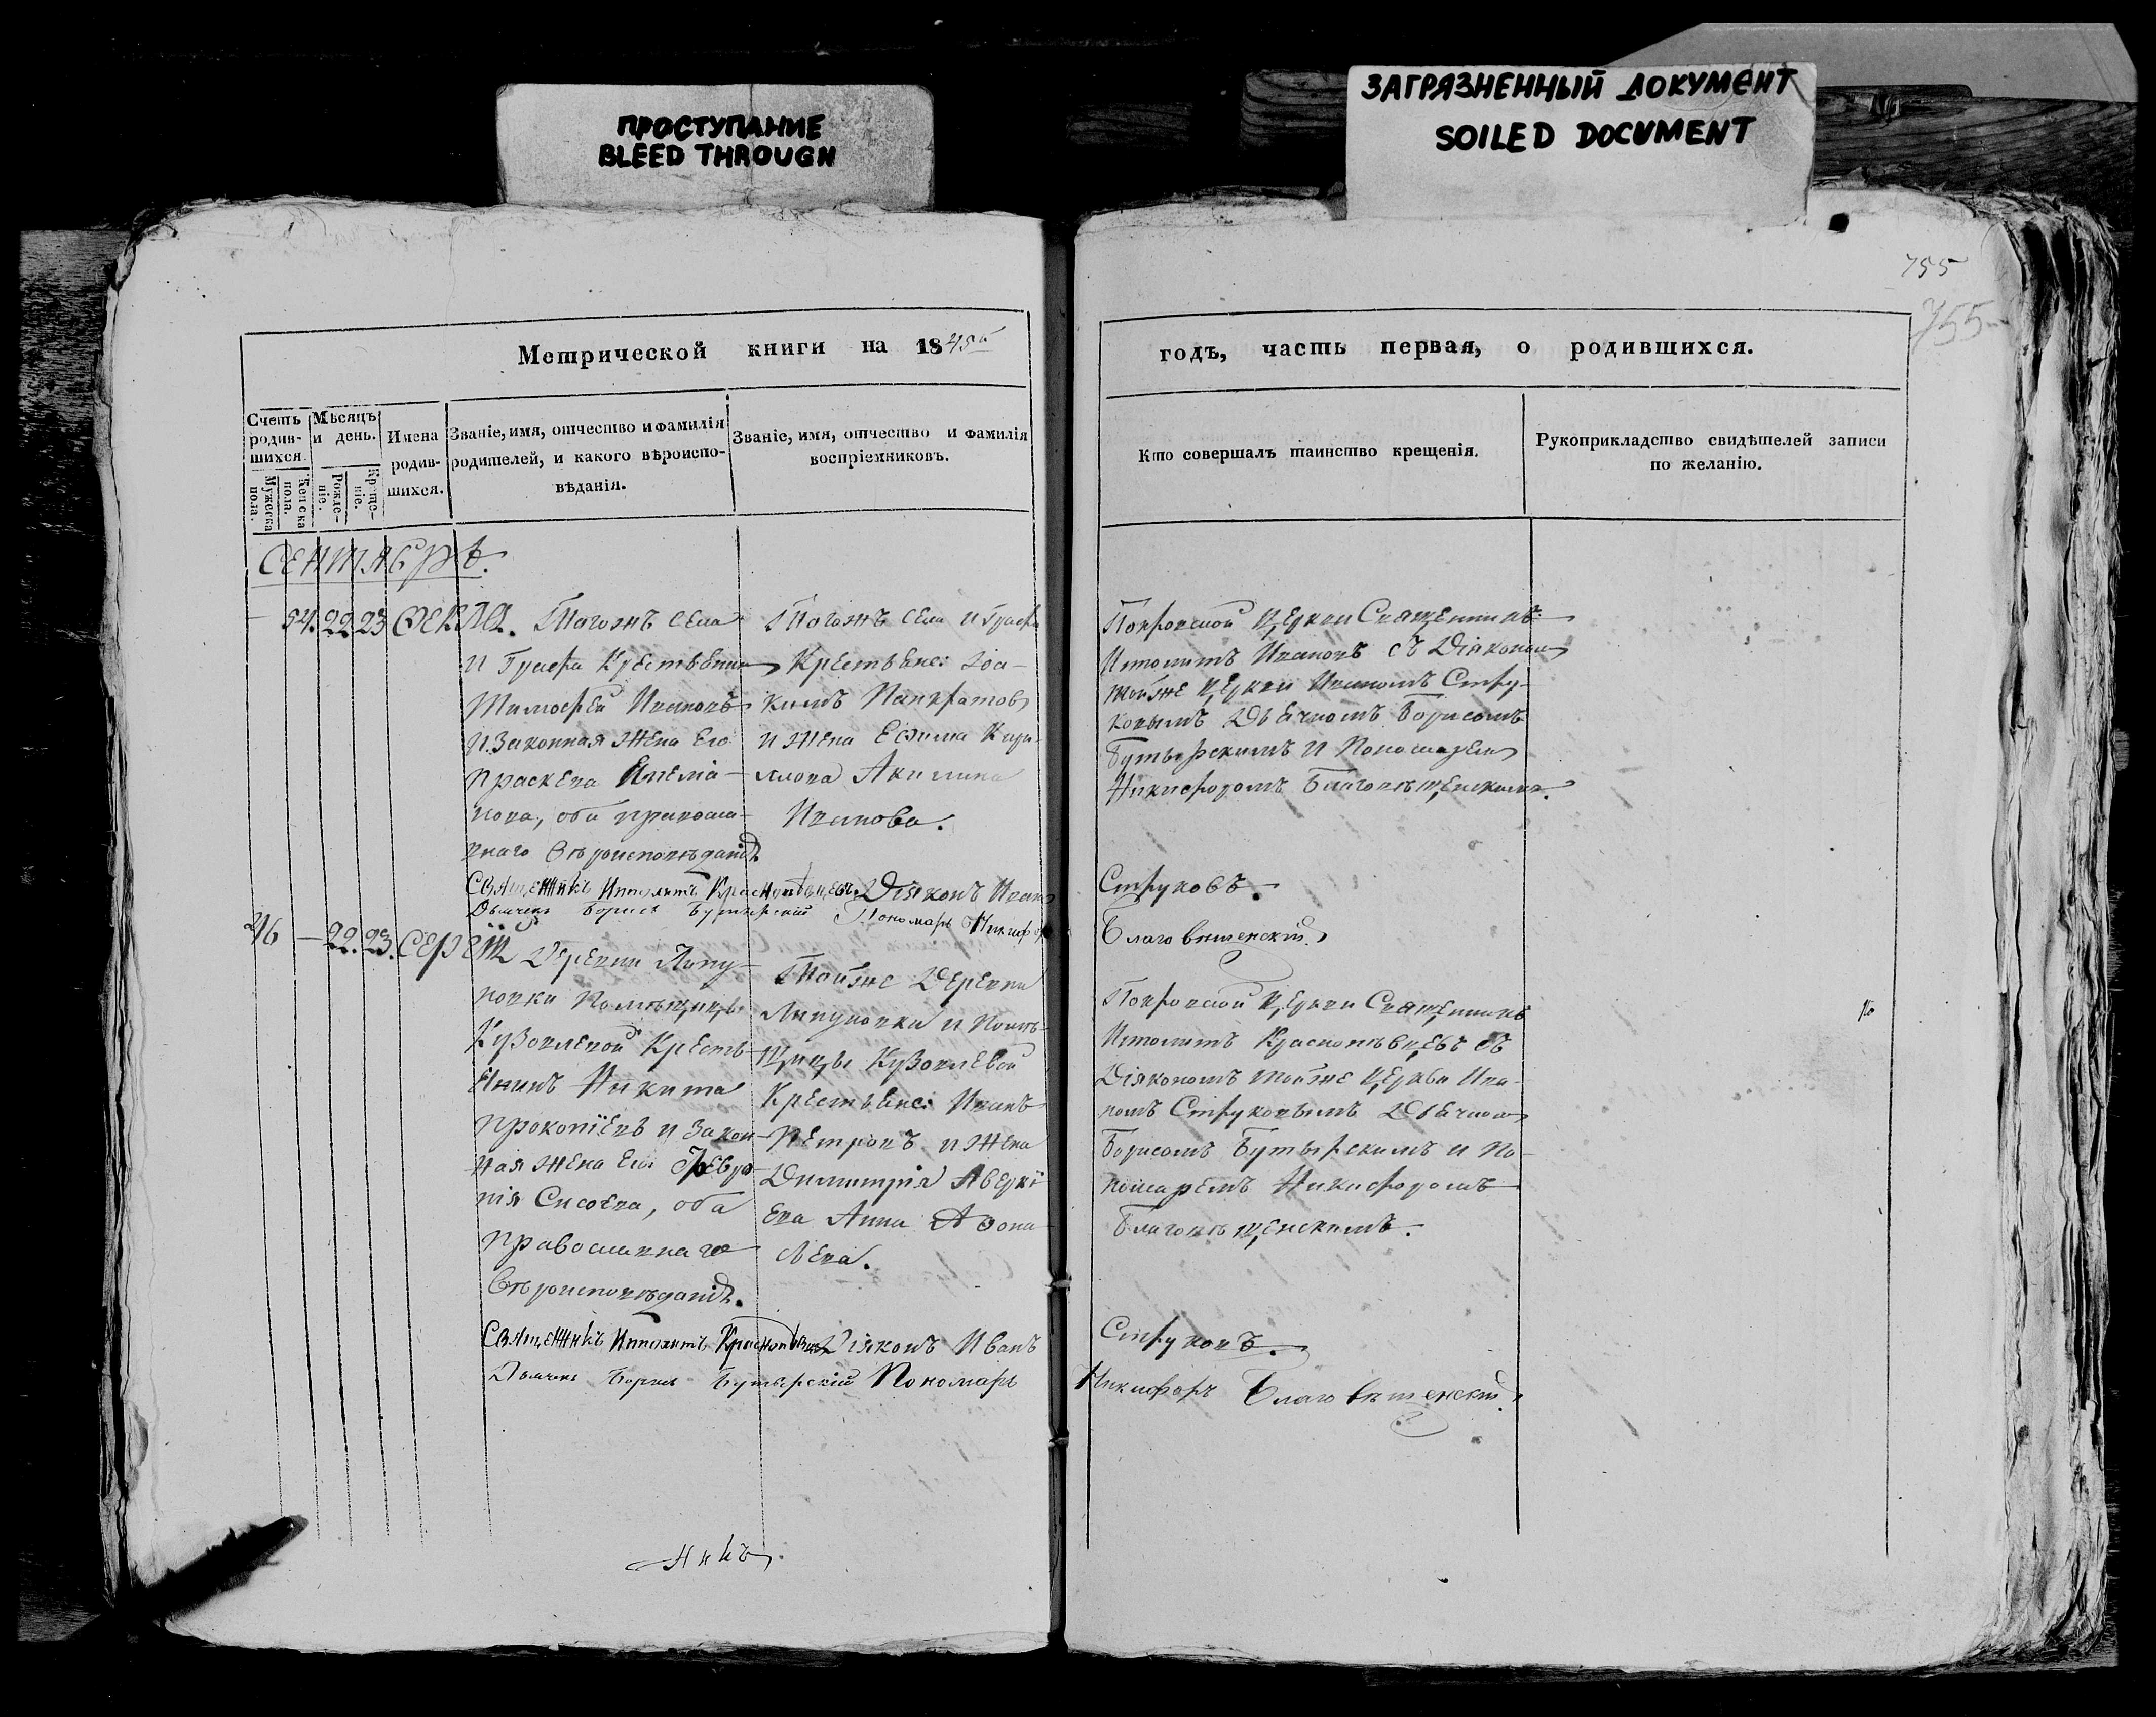 ПРОСТУПАНИЕ
BLEED THROUGH
ЗАГРЯЗНЕННЫЙ ДОКУМЕНТ
SOILED DOCUMENT
755
755
Метрической книги на 1845й
годъ, часть первая, о родившихся.
Счетъ родив-шихся.
Мужеска пола.
Женска пола.
Мѣсяцъ и день.
Рожде-ніе.
Креще-ніе.
Имена родив-шихся.
Званіе, имя, отчество и фамилія
родителей, и какого вѣроиспо-
вѣданія.
Званіе, имя, отчество и фамилія
воспріемниковъ.
Кто совершалъ таинство крещенія.
Рукоприкладство свидѣтелей записи
по желанію.
СЕНТЯБРЬ.
54. 22. 23. ѲЕКЛА.
Тогожъ села
и Графа Крестьянинъ
Тимофей Ивановъ
и законная жена его
Праскева
нова, оба православ-
наго вѣроисповѣданія.
Тогожъ села и Графа
Крестьяне: Іоа-
кимъ Панкратовъ
и жена Ефима Кири-
лова Акилина
Иванова.
Покровской Церкви Священникъ
Иполитъ Ивановъ съ Діякономъ
тойже Церкви Иваномъ Стру-
ковымъ Дьячкомъ Борисомъ
Бутырскимъ и Пономаремъ
Никифоромъ Благовѣщенскимъ.
Священникъ Ипполитъ Краснопѣвцевъ Діяконъ Иванъ
Струковъ.
Дьячекъ Борисъ Бутырскій Пономарь Никифоръ
Благовѣщенскій.
46 — 22. 23. СЕРГѢЙ
Деревни Липу-
новки Помѣщицы
Кузовлевой Кресть-
янинъ Никита
Прокопіевъ и закон-
ная жена его Февро-
нія Сисоева, оба
православнаго
Вѣроисповѣданія.
Тойже Деревни
Липуновки и Помѣ-
щицы Кузовлевой
Крестьяне: Иванъ
Петровъ и жена
Димитрія Аверкі-
ева Анна Аѳона-
сьева.
Покровской Церкви Священникъ
Иполитъ Краснопѣвцевъ съ
Діякономъ тойже Церкви Ива-
номъ Струковымъ Дьячкомъ
Борисомъ Бутырскимъ и По-
номаремъ Никифоромъ
Благовѣщенскимъ.
Священникъ Ипполитъ Краснопѣвцевъ Діяконъ Иванъ
Струковъ.
Дьячекъ Борисъ Бутырскій Пономарь
Никифоръ Благовѣщенскій.
никъ